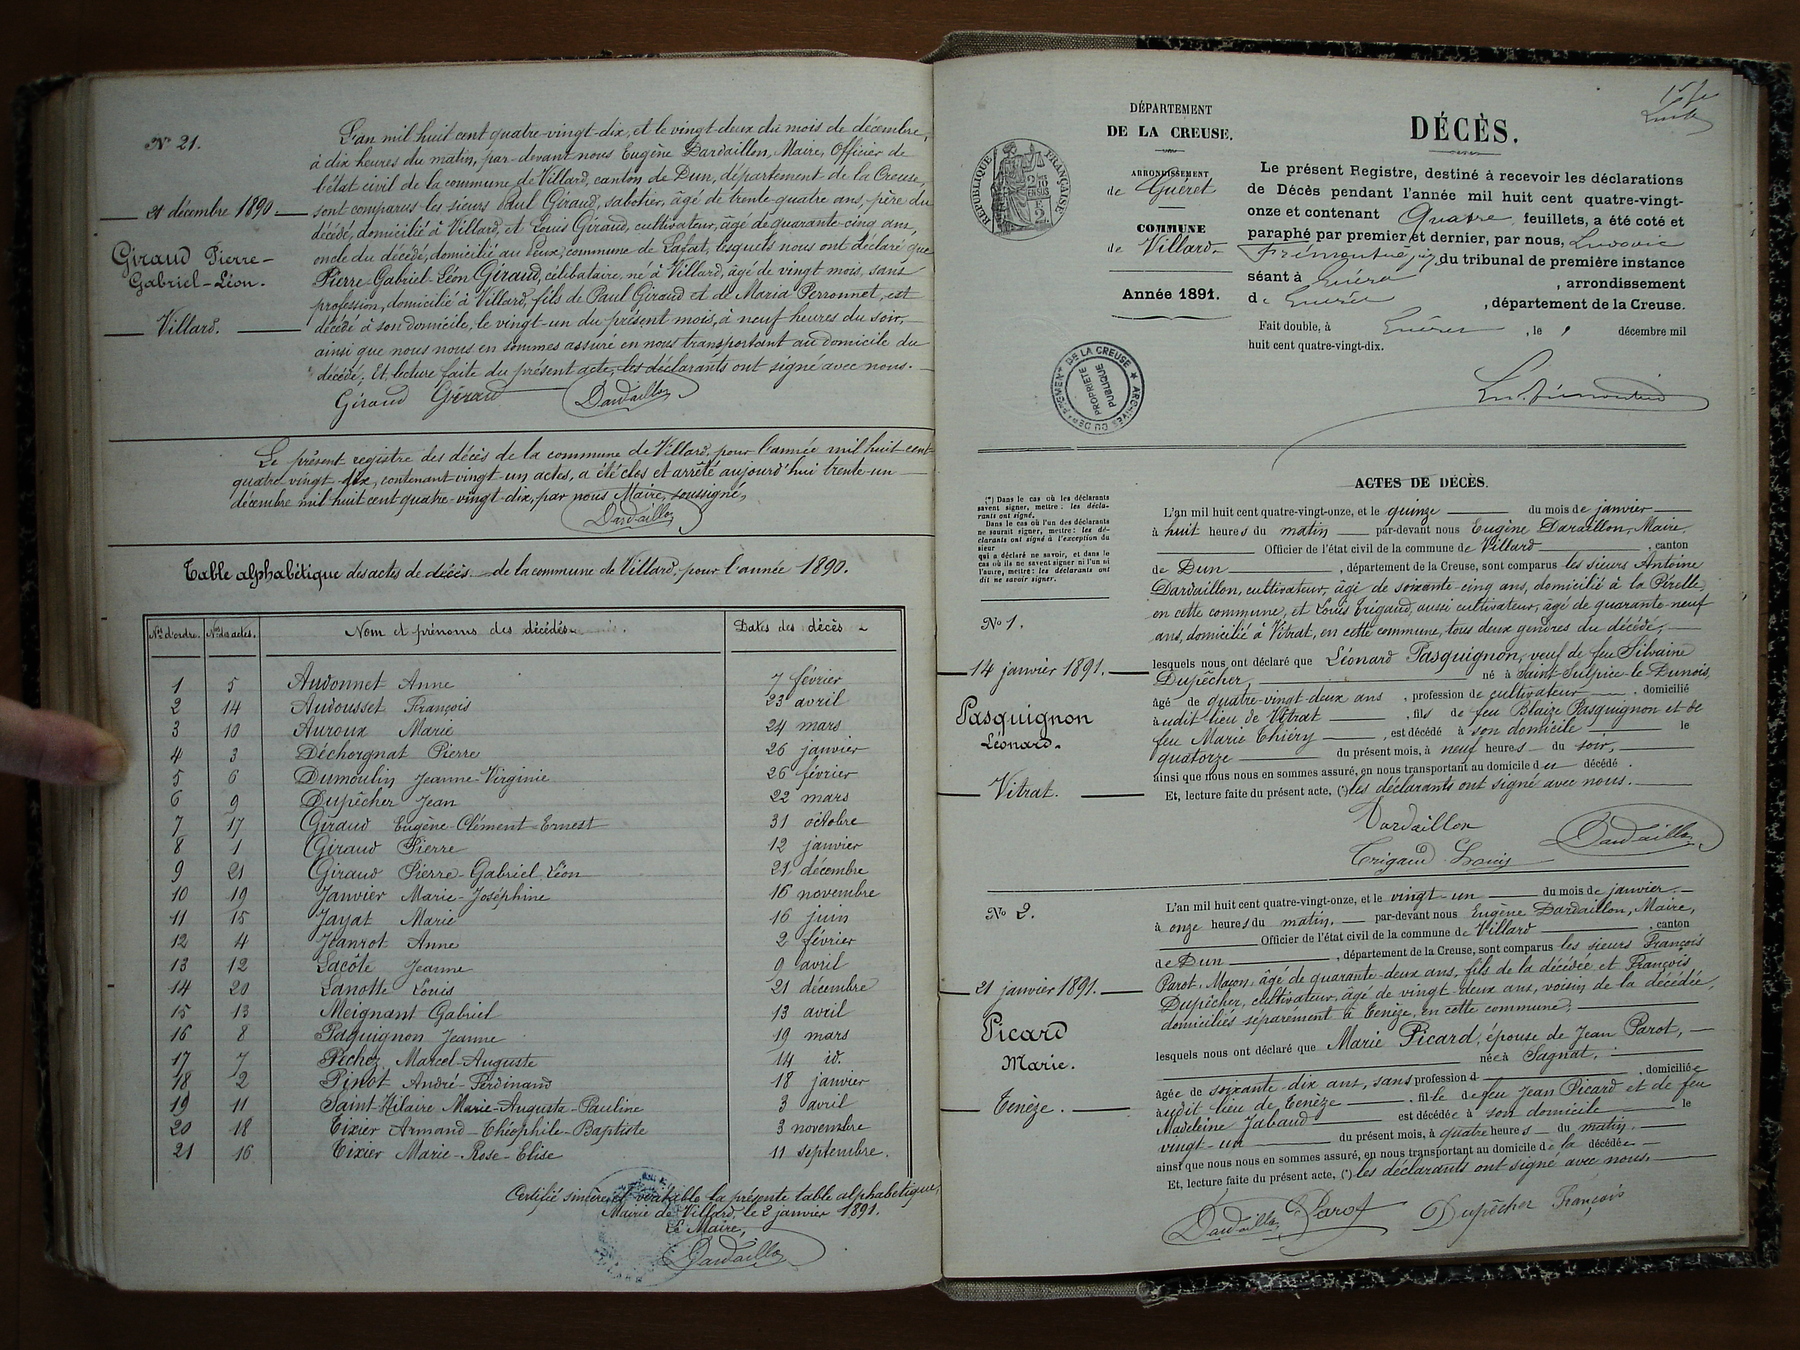 N° 21.
21 décembre 1890
Giraud Pierre-
Gabriel-Léon.
Villard.
L'an mil huit cent quatre-vingt-dix, et le vingt-deux du mois de décembre,
à dix heures du matin, par-devant nous Eugène Dardaillon, Maire, Officier de
l'état civil de la commune de Villard, canton de Dun, département de la Creuse,
sont comparus les sieurs Paul Giraud, sabotier, âgé de trente-quatre ans, père du
décédé, domicilié à Villard, et Louis Giraud, cultivateur, âgé de quarante-cinq ans,
oncle du décédé, domicilié au Peux, commune de Lafat, lesquels nous ont déclaré que
Pierre-Gabriel-Léon Giraud, célibataire, né à Villard, âgé de vingt mois, sans
profession, domicilié à Villard, fils de Paul Giraud et de Maria Perronnet, est
décédé à son domicile, le vingt-un du présent mois, à neuf heures du soir,
ainsi que nous nous en sommes assuré en nous transportant au domicile du
décédé. Et, lecture faite du présent acte, les déclarants ont signé avec nous.
Giraud Giraud Dardaillon
Le présent registre des décès de la commune de Villard, pour l'année mil huit cent
quatre-vingt-dix, contenant vingt-un actes, a été clos et arrêté aujourd'hui trente-un
décembre mil huit cent quatre-vingt-dix, par nous Maire, soussigné,
Dardaillon
Table alphabétique des actes de décès de la commune de Villard, pour l'année 1890.
Nos d'ordre. Nos des actes. Nom et prénoms des décédés Dates des décès
1 5 Audonnet Anne 7 février
2 14 Audousset François 23 avril
3 10 Auroux Marie 24 mars
4 3 Déchorgnat Pierre 26 janvier
5 6 Dumoulin Jeanne-Virginie 26 février
6 9 Dupêcher Jean 22 mars
7 17 Giraud Eugène-Clément-Ernest 31 octobre
8 1 Giraud Pierre 12 janvier
9 21 Giraud Pierre-Gabriel-Léon 21 décembre
10 19 Janvier Marie-Joséphine 16 novembre
11 15 Jayat Marie 16 juin
12 4 Jeanrot Anne 2 février
13 12 Lacôte Jeanne 9 avril
14 20 Lanotte Louis 21 décembre
15 13 Meignant Gabriel 13 avril
16 8 Pasquignon Jeanne 19 mars
17 7 Pichez Marcel-Auguste 14 id.
18 2 Pinot André-Ferdinand 18 janvier
19 11 Saint-Hilaire Marie-Augusta-Pauline 3 avril
20 18 Tixier Armand-Théophile-Baptiste 3 novembre
21 16 Tixier Marie-Rose-Elise 11 septembre.
Certifié sincère et véritable la présente table alphabétique,
Mairie de Villard, le 2 janvier 1891.
Le Maire,
Dardaillon
DÉPARTEMENT
DE LA CREUSE.
ARRONDISSEMENT
de Guéret
COMMUNE
de Villard
Année 1891.
RÉPUBLIQUE FRANÇAISE
ARCHIVES DU DÉPARTEMENT DE LA CREUSE
PROPRIÉTÉ
PUBLIQUE
DÉCÈS.
Le présent Registre, destiné à recevoir les déclarations
de Décès pendant l'année mil huit cent quatre-vingt-
onze et contenant Quatre feuillets, a été coté et
paraphé par premier et dernier, par nous, Ludovic
du tribunal de première instance
séant à Guéret, arrondissement
de Guéret, département de la Creuse.
Fait double, à Guéret, le décembre mil
huit cent quatre-vingt-dix.
ACTES DE DÉCÈS.
(*) Dans le cas où les déclarants
savent signer, mettre : les décla-
rants ont signé.
Dans le cas où l'un des déclarants
ne saurait signer, mettre : les dé-
clarants ont signé à l'exception du
sieur
qui a déclaré ne savoir, et dans le
cas où ils ne savent signer ni l'un ni
l'autre, mettre : les déclarants ont
dit ne savoir signer.
N° 1.
14 janvier 1891.
Pasquignon
Léonard.
Vitrat.
L'an mil huit cent quatre-vingt-onze, et le quinze du mois de janvier
à huit heures du matin par-devant nous Eugène Dardaillon, Maire,
Officier de l'état civil de la commune de Villard, canton
de Dun, département de la Creuse, sont comparus les sieurs Antoine
Dardaillon, cultivateur, âgé de soixante-cinq ans, domicilié à la Pérelle,
en cette commune, et Louis Trigaud, aussi cultivateur, âgé de quarante-neuf
ans, domicilié à Vitrat, en cette commune, tous deux gendres du décédé,
lesquels nous ont déclaré que Léonard Pasquignon, veuf de feu Silvaine
Dupêcher, né à Saint-Sulpice-le-Dunois,
âgé de quatre-vingt-deux ans, profession de cultivateur, domicilié
audit lieu de Vitrat, fils de feu Blaize Pasquignon et de
feu Marie Thiéry, est décédé à son domicile le
quatorze du présent mois, à neuf heures du soir,
ainsi que nous nous en sommes assuré, en nous transportant au domicile du décédé.
Et, lecture faite du présent acte, (*) les déclarants ont signé avec nous.
Dardaillon
Trigaud Louis Dardaillon
N° 2.
21 janvier 1891.
Picard
Marie.
Tenèze.
L'an mil huit cent quatre-vingt-onze, et le vingt-un du mois de janvier
à onze heures du matin, par-devant nous Eugène Dardaillon, Maire,
Officier de l'état civil de la commune de Villard, canton
de Dun, département de la Creuse, sont comparus les sieurs François
Parot, Maçon, âgé de quarante-deux ans, fils de la décédée et François
Dupêcher, cultivateur, âgé de vingt-deux ans, voisin de la décédée,
domiciliés séparément à Tenèze, en cette commune,
lesquels nous ont déclaré que Marie Picard, épouse de Jean Parot,
née à Sagnat,
âgée de soixante-dix ans, sans profession d, domiciliée
audit lieu de Tenèze, fille de feu Jean Picard et de feu
Madeleine Jabaud est décédée à son domicile le
vingt-un du présent mois, à quatre heures du matin.
ainsi que nous nous en sommes assuré, en nous transportant au domicile de la décédée
Et, lecture faite du présent acte, (*) les déclarants ont signé avec nous.
Dardaillon Parot Dupêcher François